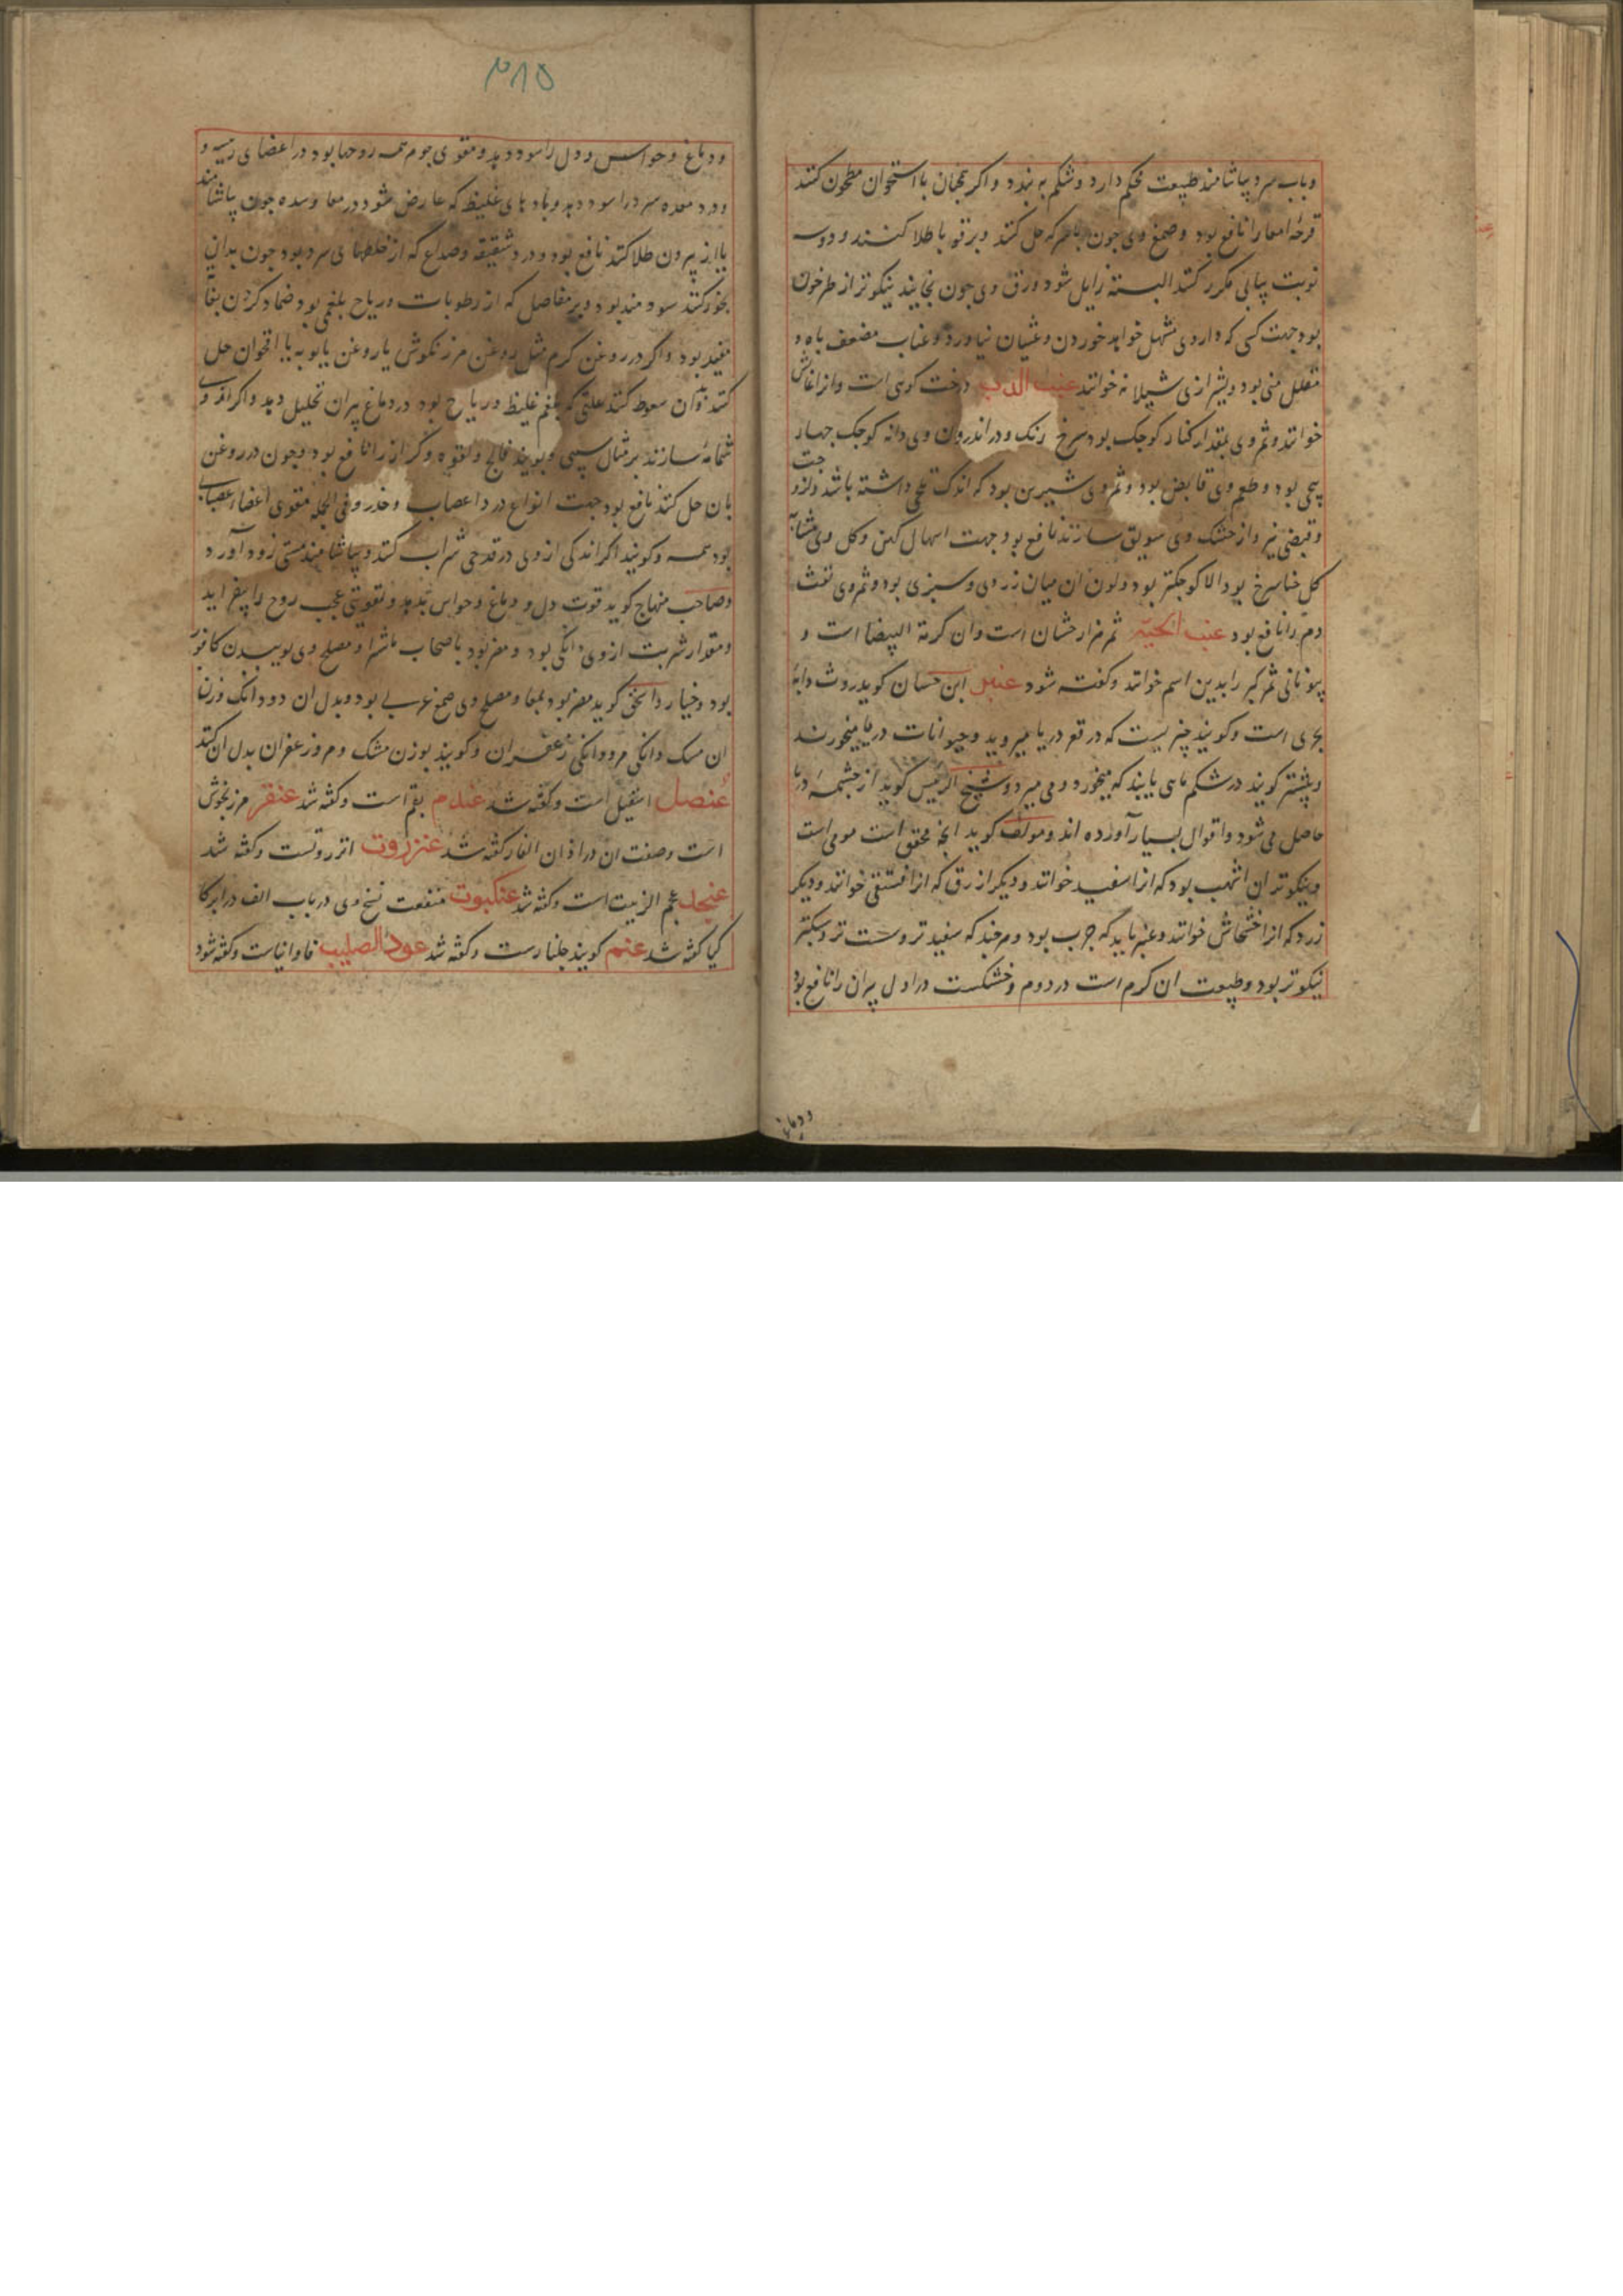 وباب سرد بیاشامند طبیعت محکم دارد وشکم به بندد واکر همچنان با استخوان مطحون کنند
قرحهٔ امعا را نافع بود وصمغ وی چون بسرکه حل کنند وبر قوبا طلا کنند ودو سه
نوبت پیاپی مکرر کنند البته زایل شود وورق وی چون بخایند نیکوتر از طرخون
بود جهت کسی که داروی مسهل خواهد خوردن وغثیان نیاورد وعناب مضعف باه و
مقلل منی بود وبشیرازی شیلانه خوانند عنب الدب درخت کوهی است وانرا غاش
خوانند وثمر وی بمقدار کنار کوچک بود سرخ رنک ودر اندرون وی دانه کوچک چهار
پنج بود وطعم وی قابض بود وثمر وی شیرین بود که اندک تلخی داشته باشد ولزوجت
وقبضی نیز واز خشک وی سویق سازند نافع بود جهت اسهال کهن وکل وی مشابه
کل حنا سرخ بود الا کوچکتر بود ولون ان میان زردی وسبزی بود وثمر وی نفث
دم را نافع بود عنب الحیه ثمر هزارجشان است وان کرمة البیضا است و
یونانی ثمر کبر را بدین اسم خوانند وکفته شود عنبر ابن حسان کوید روث دابهٔ
بحری است وکویند چیزیست که در قعر دریا میروید وحیوانات دریا میخورند
وبیشتر کویند در شکم ماهی یابند که میخورد ومی میرد وشیخ الرئیس کوید از چشمهٔ دریا
حاصل می شود واقوال بسیار آورده اند ومولف کوید انچه محقق است مومی است
ونیکوترین ان اشهب بود که انرا سفید خوانند ودیکر ازرق که انرا فستقی خوانند ودیکر
زرد که انرا خشخاش خوانند وعنبر باید که چرب بود وهرچند که سفیدتر وسست تر وسبکتر
نیکوتر بود وطبیعت ان کرم است در دوم وخشکست در اول پیران را نافع بود
ودماغ
۳۸۵
ودماغ وحواس ودل را سود دهد ومقوی جوهر همه روحها بود در اعضای رئیسه و
ودرد معده سرد را سود دهد وبادهای غلیظ که عارض شود در معا وسده چون بیاشامند
یا از بیرون طلا کنند نافع بود ودرد شقیقه وصداع که از خلطهای سرد بود چون بدان
بخور کنند سودمند بود وبر مفاصل که از رطوبات وریاح بلغمی بود ضماد کردن بغایت
مفید بود واکر در روغن کرم مثل روغن مرزنکوش یا روغن بابونه یا اقحوان حل
کنند وبدان سعوط کنند علتی که بلغم غلیظ وریاح بود در دماغ پیران تحلیل دهد واکر از وی
شمامه سازند بر مثال سیبی وبویند فالج ولقوه وکزاز را نافع بود وچون در روغن
بان حل کنند نافع بود جهت انواع درد اعصاب وخدر وفی الجمله مقوی اعضاء عصبانی
بود همه وکویند اکر اندکی از وی در قدحی شراب کنند وبیاشامند مستی زود آورد
وصاحب منهاج کوید قوت دل ودماغ وحواس بدهد وتقویتی عجب روح را بیفزاید
ومقدار شربت از وی دانکی بود ومضر بود باصحاب ماشرا ومصلح وی بوییدن کافور
بود وخیار وانحق کوید مضر بود بمعا ومصلح وی صمغ عربی بود وبدل ان دو دانک وزن
ان مسک دانکی مر ودانکی زعفران وکویند بوزن مشک ومر وزعفران بدل ان کنند
عنصل اسقیل است وکفته شد عندم بقم است وکفته شد عنقر مرزنجوش
است وصفت ان در اذان الفار کفته شد عنزروت انزروتست وکفته شد
عنجد عجم الزبیب است وکفته شد عنکبوت منفعت نسخ وی در باب الف در ابرکا
کیا کفته شد عنم کویند جلنارست وکفته شد عود الصلیب فاوانیاست وکفته شود